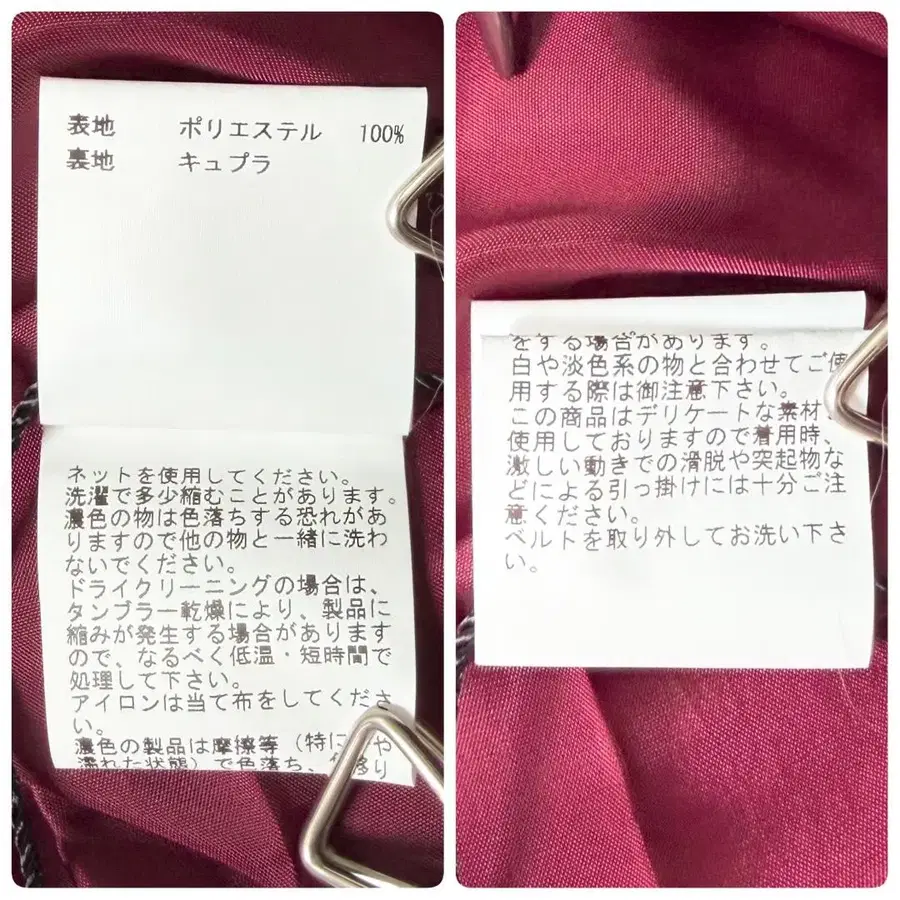 表地 ポリエステル 100%
裏地 キュプラ
ネットを使用してください。
洗濯で多少縮むことがあります。
濃色の物は色落ちする恐れがあ
りますので他の物と一緒に洗わ
ないでください。
ドライクリーニングの場合は、
タンブラー乾燥により、製品に
縮みが発生する場合があります
ので、なるべく低温・短時間で
処理して下さい。
アイロンは当て布をしてくださ
い。
濃色の製品は摩擦等（特に
や
濡れた状態）で色落ち、
移り
をする場合があります。
白や淡色系の物と合わせてご使
用する際は御注意下さい。
この商品はデリケートな素材
使用しておりますので着用時、
激しい動きでの滑脱や突起物な
どによる引っ掛けには十分ご注
意ください。
ベルトを取り外してお洗い下さ
い。